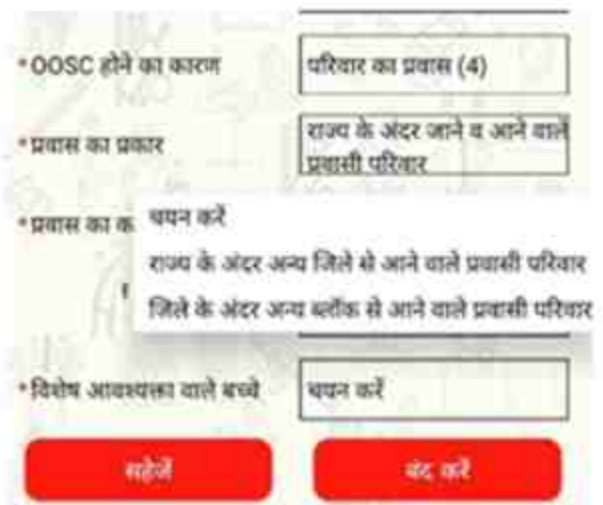 *OOSC होने का कारण
परिवार का प्रवास (4)
*प्रवास का प्रकार
राज्य के अंदर जाने व आने वाले
प्रवासी परिवार
*प्रवास का क
चयन करें
राज्य के अंदर अन्य जिले से आने वाले प्रवासी परिवार
जिले के अंदर अन्य ब्लॉक से आने वाले प्रवासी परिवार
*विशेष आवश्यक्ता वाले बच्चे
चयन करें
सहेजें
बंद करें